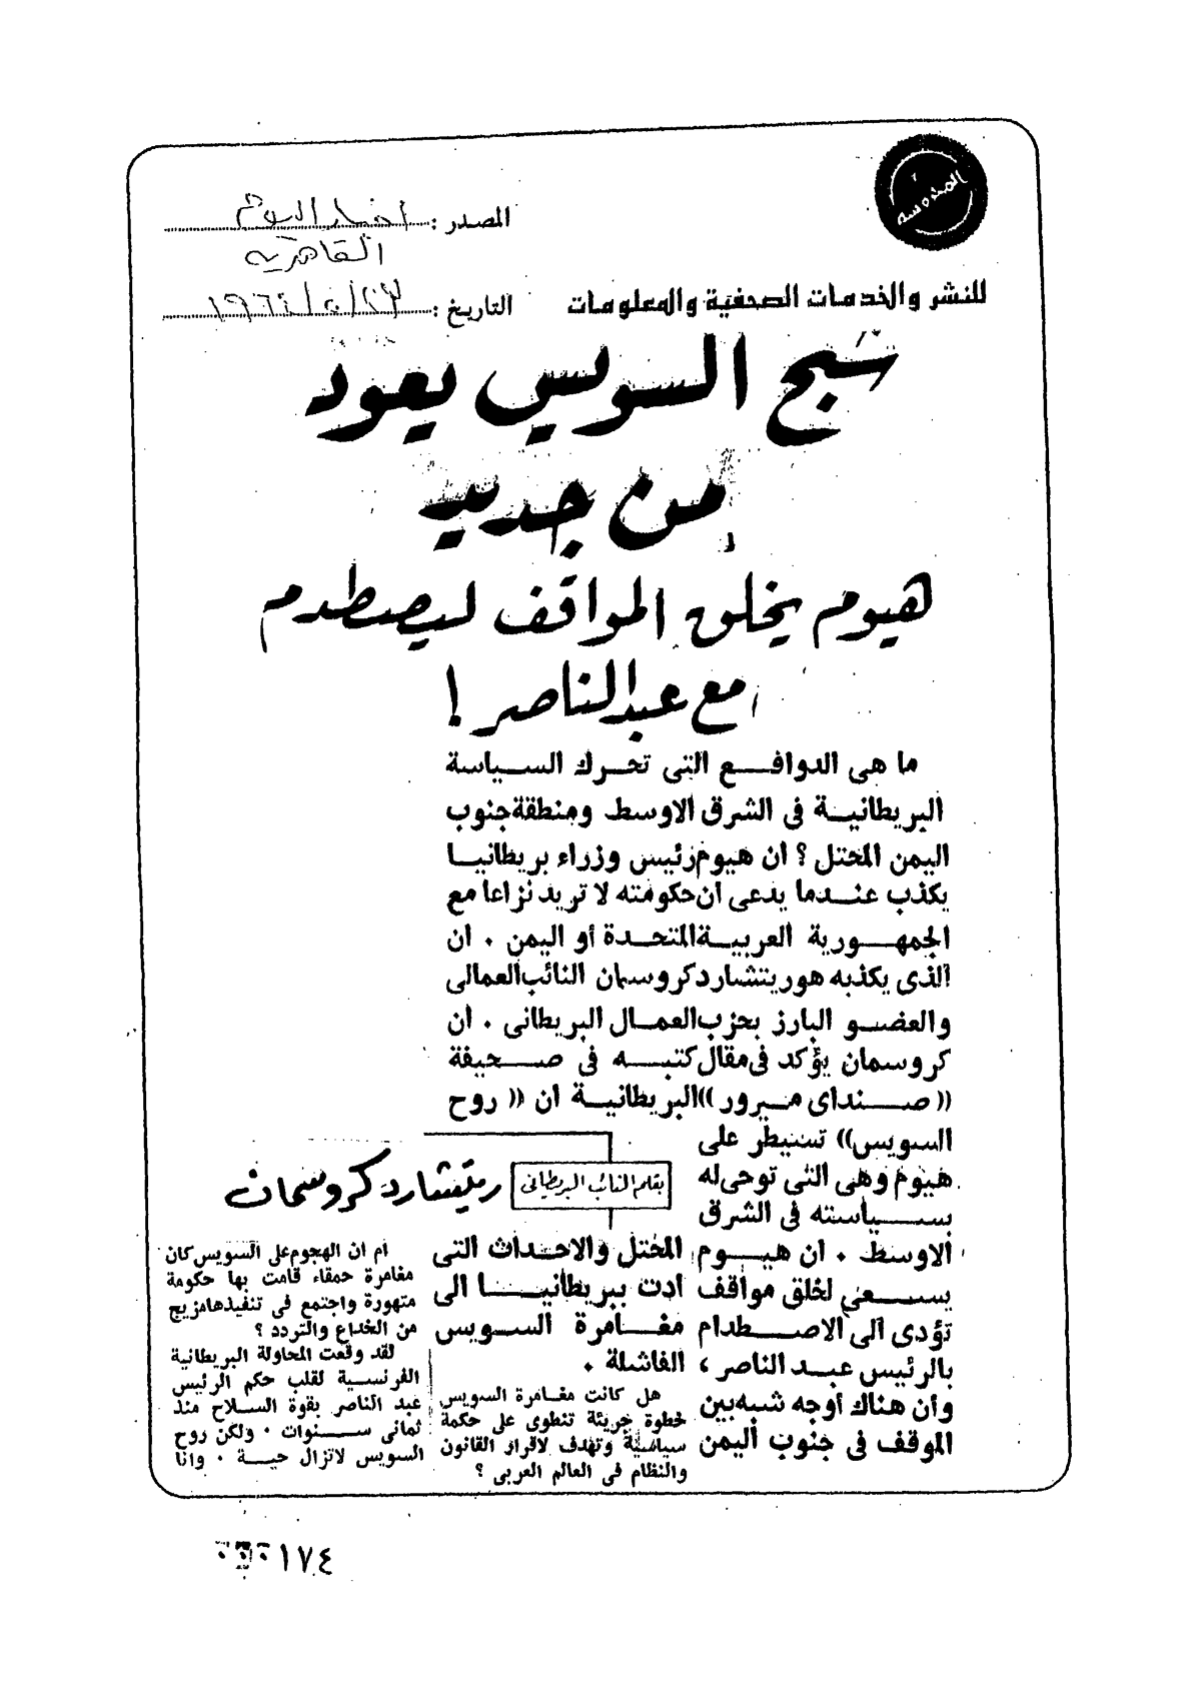 المحروسة
المصدر : اخبار اليوم
القاهرية
للنشر والخدمات الصحفية والمعلومات
التاريخ : ٢٣/٥/١٩٦٤
شبح السويس يعود
من جديد
هيوم يخلق المواقف ليصطدم
مع عبدالناصر !
ما هى الدوافــع التى تحـرك السـياسة
البريطانيـة فى الشرق الاوسط ومنطقة جنوب
اليمن المحتل ؟ ان هيوم رئيس وزراء بريطانيـا
يكذب عنـدما يدعى ان حكومته لا تريد نزاعا مع
الجمهـورية العربيـة المتحـدة أو اليمن . ان
الذى يكذبه هو ريتشارد كروسمان النائب العمالى
والعضـو البارز بحزب العمـال البريطانى . ان
كروسمان يؤكد فى مقال كتبـه فى صـحيفة
((صـنداى ميـرور)) البريطانيـة ان (( روح
السويس)) تسيطر على
هيوم وهى التى توحى له
بسـياسته فى الشرق
الاوسط . ان هيـوم
يسـعى لخلق مواقف
تؤدى الى الاصـطدام
بالرئيس عبـد الناصر ،
وأن هناك أوجه شبه بين
الموقف فى جنوب اليمن
المحتل والاحـداث التى
ادت ببريطانيــا الى
مغـامرة السـويس
الفاشلة .
بقلم النائب البريطانى
ريتشارد كروسمان
هل كانت مغـامرة السويس
خطوة جريئة تنطوى على حكمة
سياسية وتهدف لاقرار القانون
والنظام فى العالم العربى ؟
أم ان الهجوم على السويس كان
مغامرة حمقاء قامت بها حكومة
متهورة واجتمع فى تنفيذها مزيج
من الخداع والتردد ؟
لقد وقعت المحاولة البريطانية
الفرنسـية لقلب حكم الرئيس
عبد الناصر بقوة السـلاح منذ
ثمانى سـنوات . ولكن روح
السويس لاتزال حيـة . وانا
١٧٤